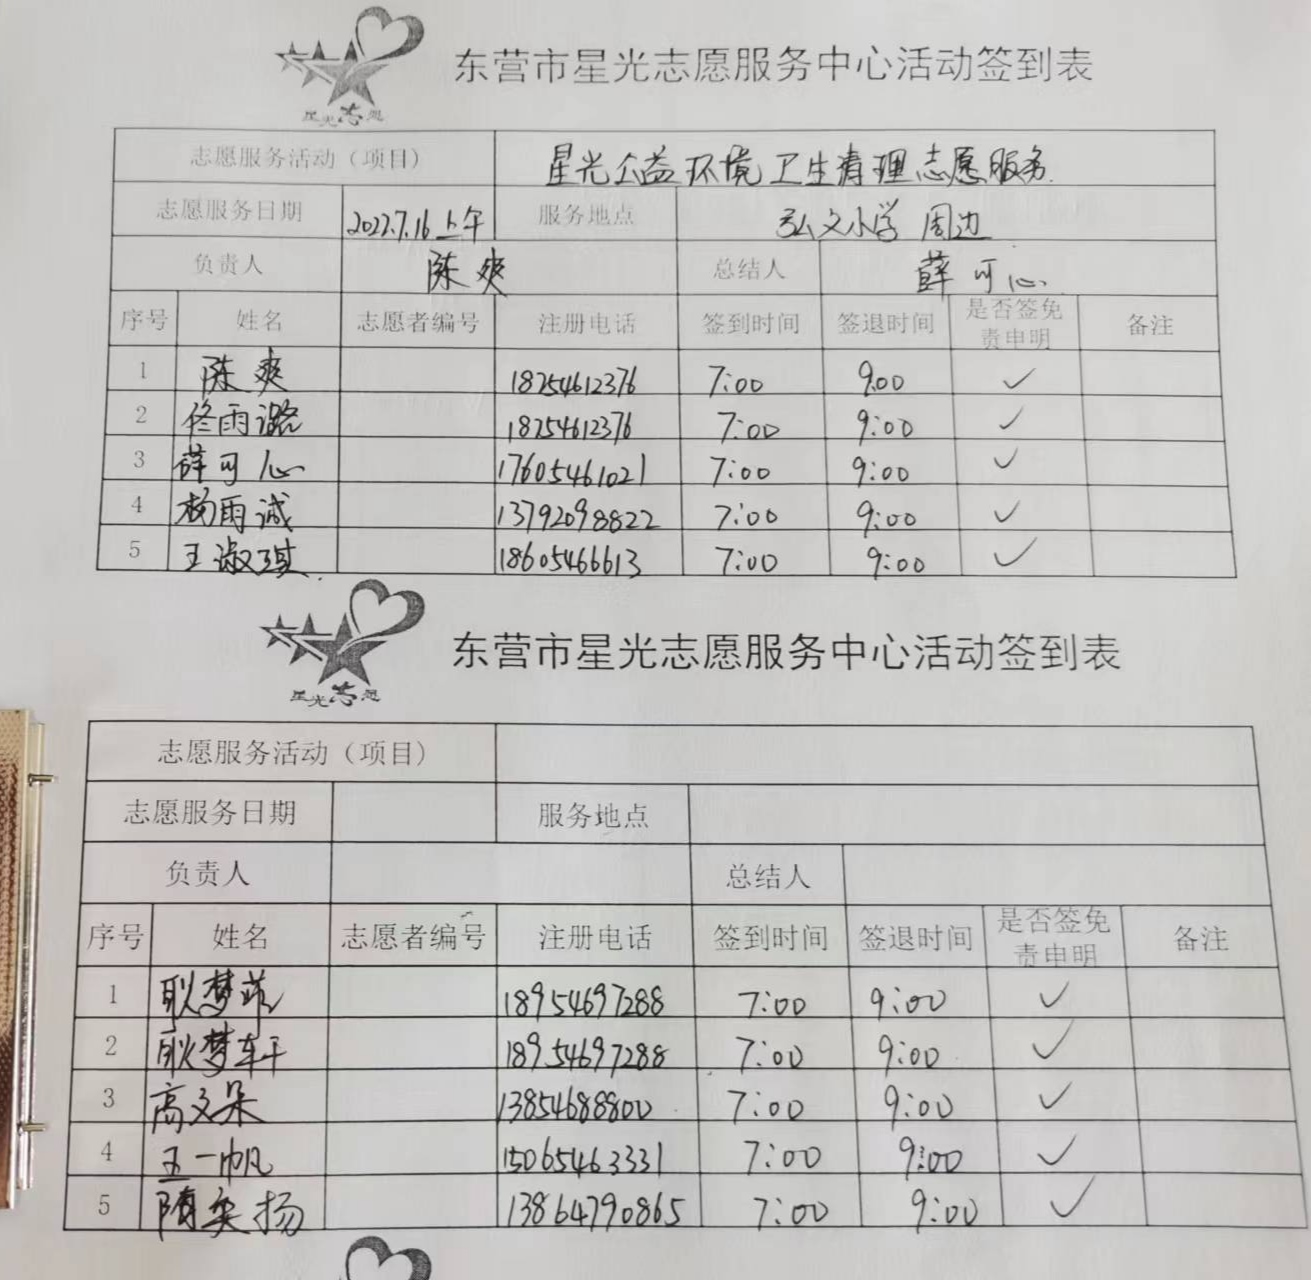 星光志愿
东营市星光志愿服务中心活动签到表
志愿服务活动（项目） 星光公益环境卫生清理志愿服务
志愿服务日期 2022.7.16上午 服务地点 弘文小学周边
负责人 陈爽 总结人 薛可心
序号 姓名 志愿者编号 注册电话 签到时间 签退时间 是否签免责申明 备注
1 陈爽 18254612376 7:00 9:00 ✓
2 佟雨潞 18254612376 7:00 9:00 ✓
3 薛可心 17605461021 7:00 9:00 ✓
4 杨雨诚 13792098822 7:00 9:00 ✓
5 王淑琪 18605466613 7:00 9:00 ✓
星光志愿
东营市星光志愿服务中心活动签到表
志愿服务活动（项目）
志愿服务日期 服务地点
负责人 总结人
序号 姓名 志愿者编号 注册电话 签到时间 签退时间 是否签免责申明 备注
1 耿梦菲 18954697288 7:00 9:00 ✓
2 耿梦轩 18954697288 7:00 9:00 ✓
3 高文朵 13854688800 7:00 9:00 ✓
4 王一帆 15065463331 7:00 9:00 ✓
5 隋奕扬 13864790865 7:00 9:00 ✓